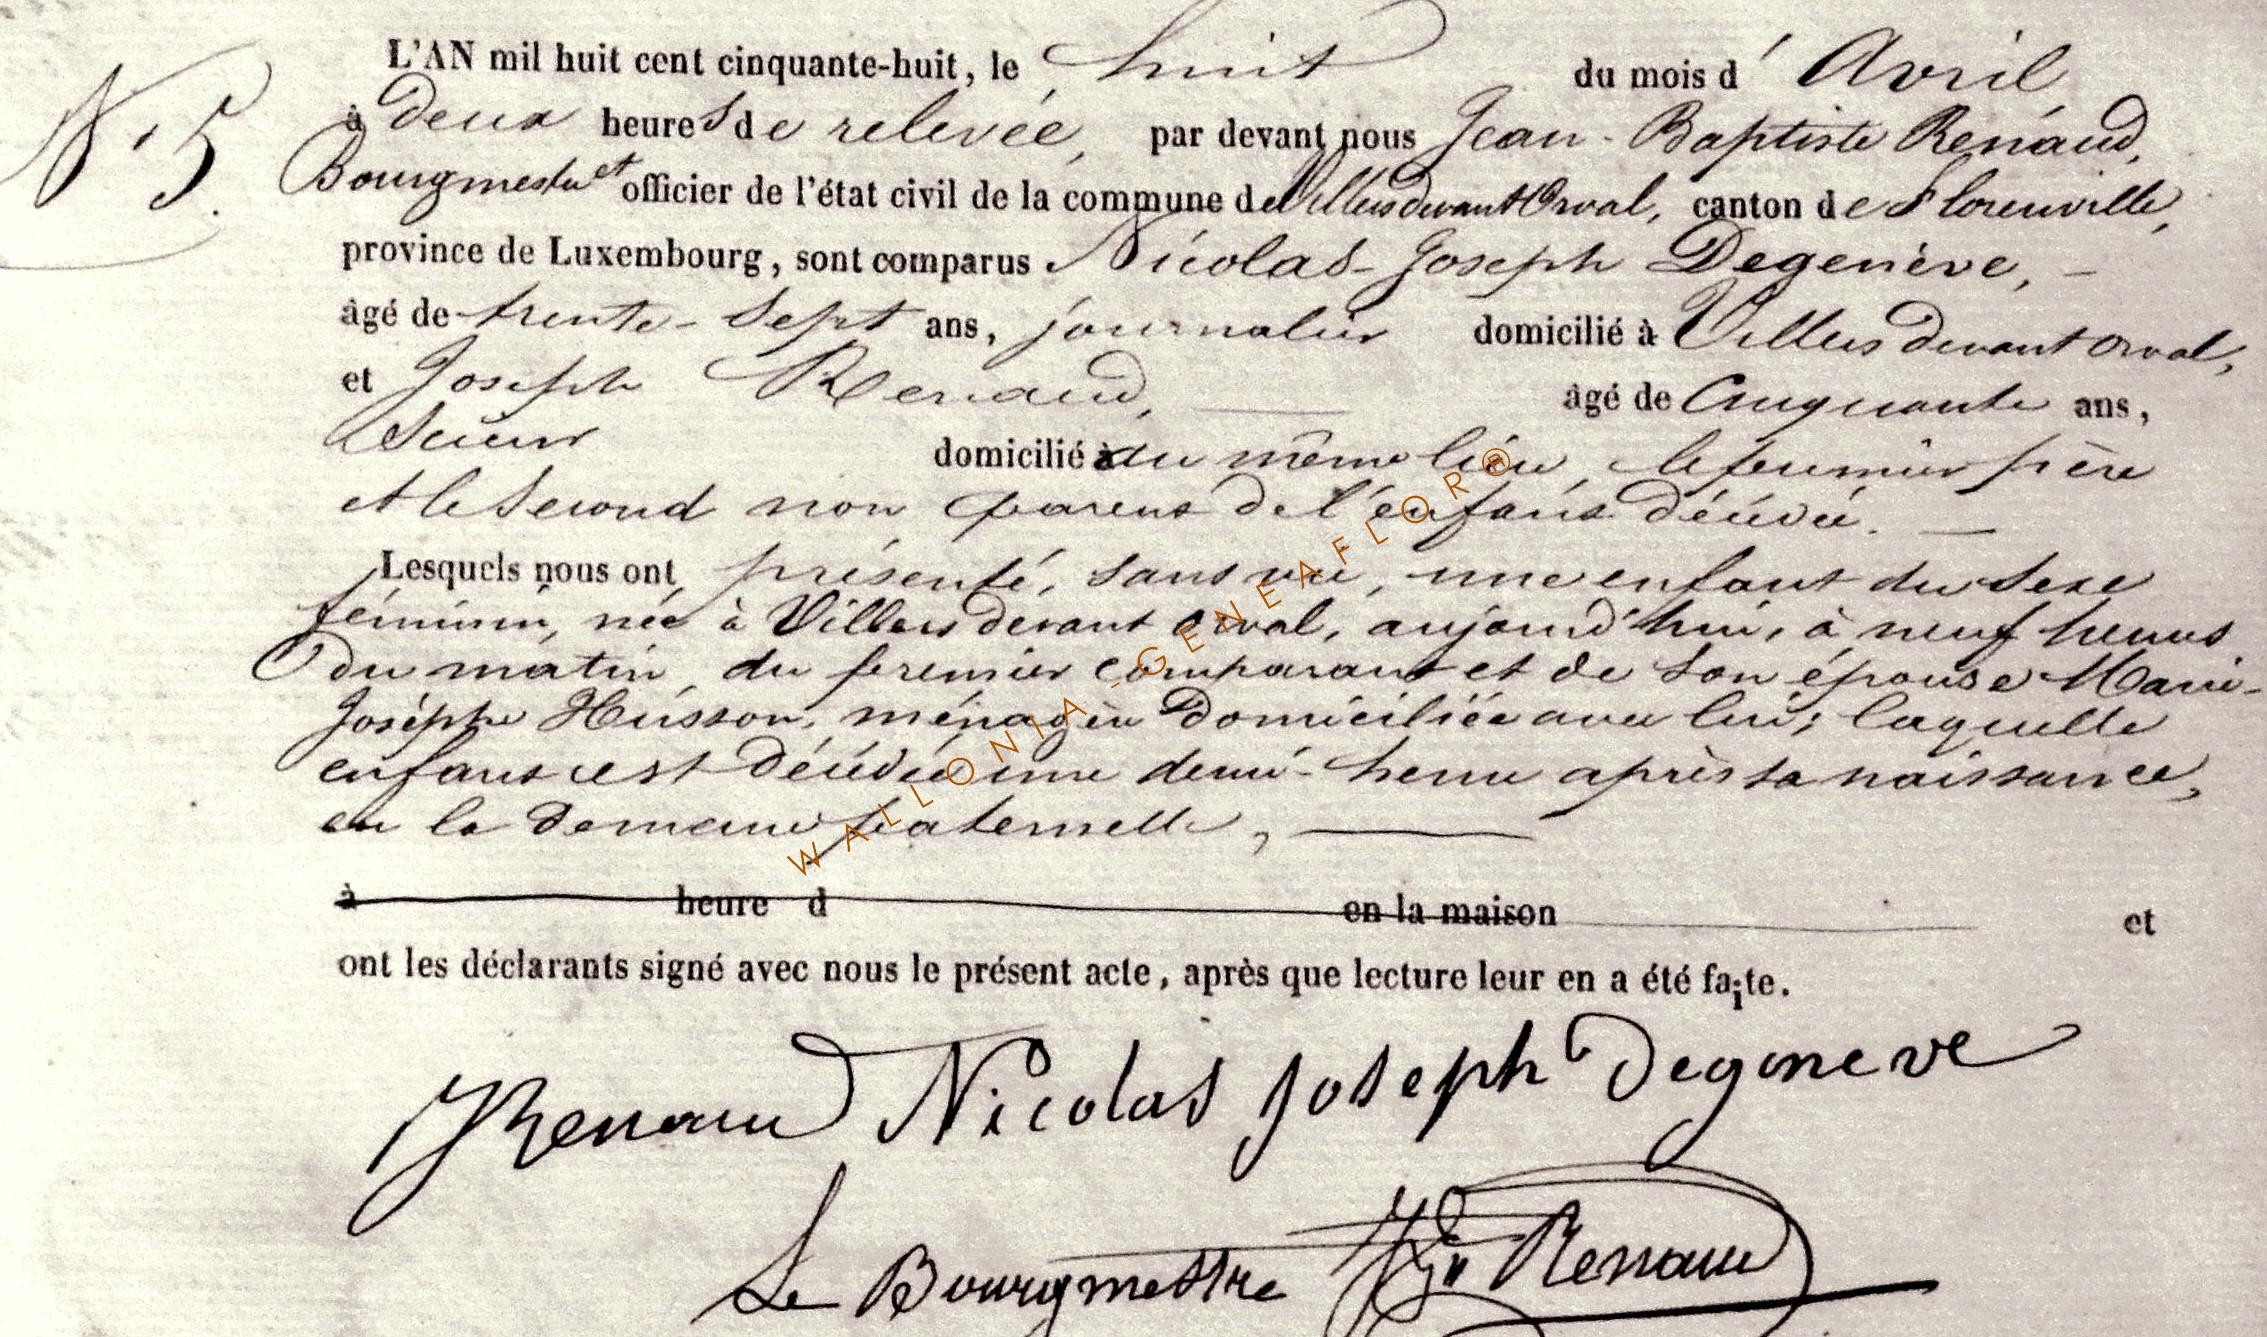 N° 5.
L'AN mil huit cent cinquante-huit, le huit du mois d'Avril,
à deux heures de relevée, par devant nous Jean-Baptiste Renaud,
Bourgmestre et officier de l'état civil de la commune de Villers devant Orval, canton de Florenville,
province de Luxembourg, sont comparus Nicolas-Joseph Degenève, -
âgé de trente-sept ans, journalier domicilié à Villers devant orval,
et Joseph Renaud, — âgé de Cinquante ans,
Scieur domicilié du même lieu, le premier père
et le Second non parent de l'enfant décédé. —
Lesquels nous ont présenté, sans vie, une enfant du Sexe
féminin, née à Villers devant orval, aujourd'hui, à neuf heures
du matin, du premier comparant et de Son épouse Marie-
Joséphe Husson, ménagère domiciliée avec lui; laquelle
enfant est décédée une demi-heure après sa naissance,
en la demeure paternelle, —
à heure d en la maison et
ont les déclarants signé avec nous le présent acte, après que lecture leur en a été faite.
JRenaud Nicolas Joseph Degeneve
Le Bourgmestre Renaud
WALLONIA-GENEAFLOR®